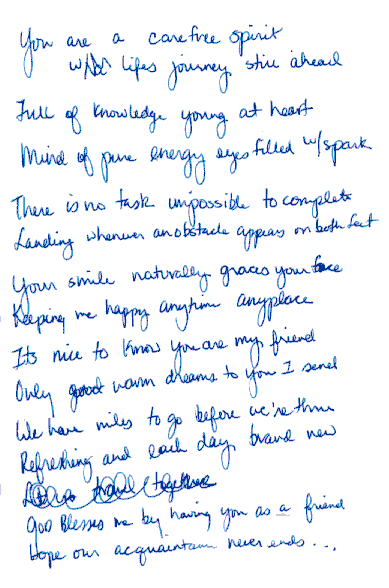 You are a carefree spirit
w/ lifes journey still ahead
Full of knowledge young at heart
Mind of pure energy eyes filled w/spark
There is no task impossible to complete
Landing whenever an obstacle appears on both feet
Your smile naturally graces your face
Keeping me happy anytime anyplace
Its nice to know you are my friend
Only good warm dreams to you I send
We have miles to go before we're thru
Refreshing and each day brand new
travel together
God Blesses me by having you as a friend
Hope our acquaintance never ends...